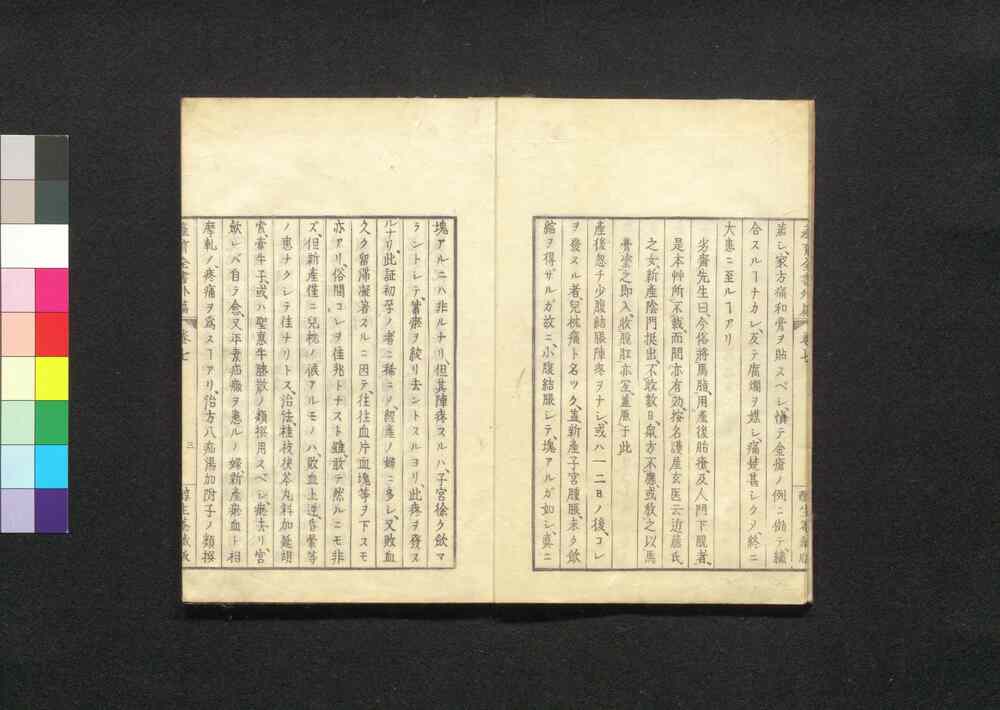 蒸シ、家方痛和膏ヲ貼スベシ、慎テ金瘡ノ例ニ倣テ、縫
合スルヿナカレ、反テ腐爛ヲ媒シ、痛楚甚シクノ、終ニ
大患ニ至ルヿアリ
劣齋先生曰、今俗將馬脂、用產後胎瘡、及人門下脫者、
是本艸所不載、而間亦有効、按名護屋玄医云、近藤氏
之女、新產陰門挺出、不收數日、眾方不應、或教之以馬
膏塗之即入、收脫肛亦宜、蓋原于此
產後忽チ少腹結脹陣疼ヲナシ、或ハ一二日ノ後、コレ
ヲ發スル者、兒枕痛ト名ツク、蓋新產子宮腫脹、未ク斂
縮ヲ得ザルガ故ニ、小腹結脹シテ、塊アルガ如シ、真ニ
塊アルニハ非ルナリ、但其陣疼スルハ、子宮徐ク斂マ
ラントシテ、蓄瘀ヲ綻リ去ントスルヨリ、此疼ヲ發ス
ルナリ、此証初孕ノ者ニ稀ニノ、經產ノ婦ニ多シ、又敗血
久ク留滯凝著スルニ因テ、往往血片血塊等ヲ下スモ
亦アリ、俗間コレヲ佳兆トナスト雖、敢テ然ルニモ非
ズ、但新產僅ニ兒枕ノ候アルモノハ、敗血上逆昏暈等
ノ患ナクシテ佳ナリトス、治法、桂枝茯苓丸料加延胡
索、牽牛子、或ハ聖惠牛膝散ノ類撰用スベシ、瘀去リ宮
斂レバ自ラ愈、又平素疝癥ヲ患ルノ婦、新產瘀血ト相
摩軋ノ疼痛ヲ為スヿアリ、治方八疝湯加附子ノ類撰
產育全書外篇 卷七
三